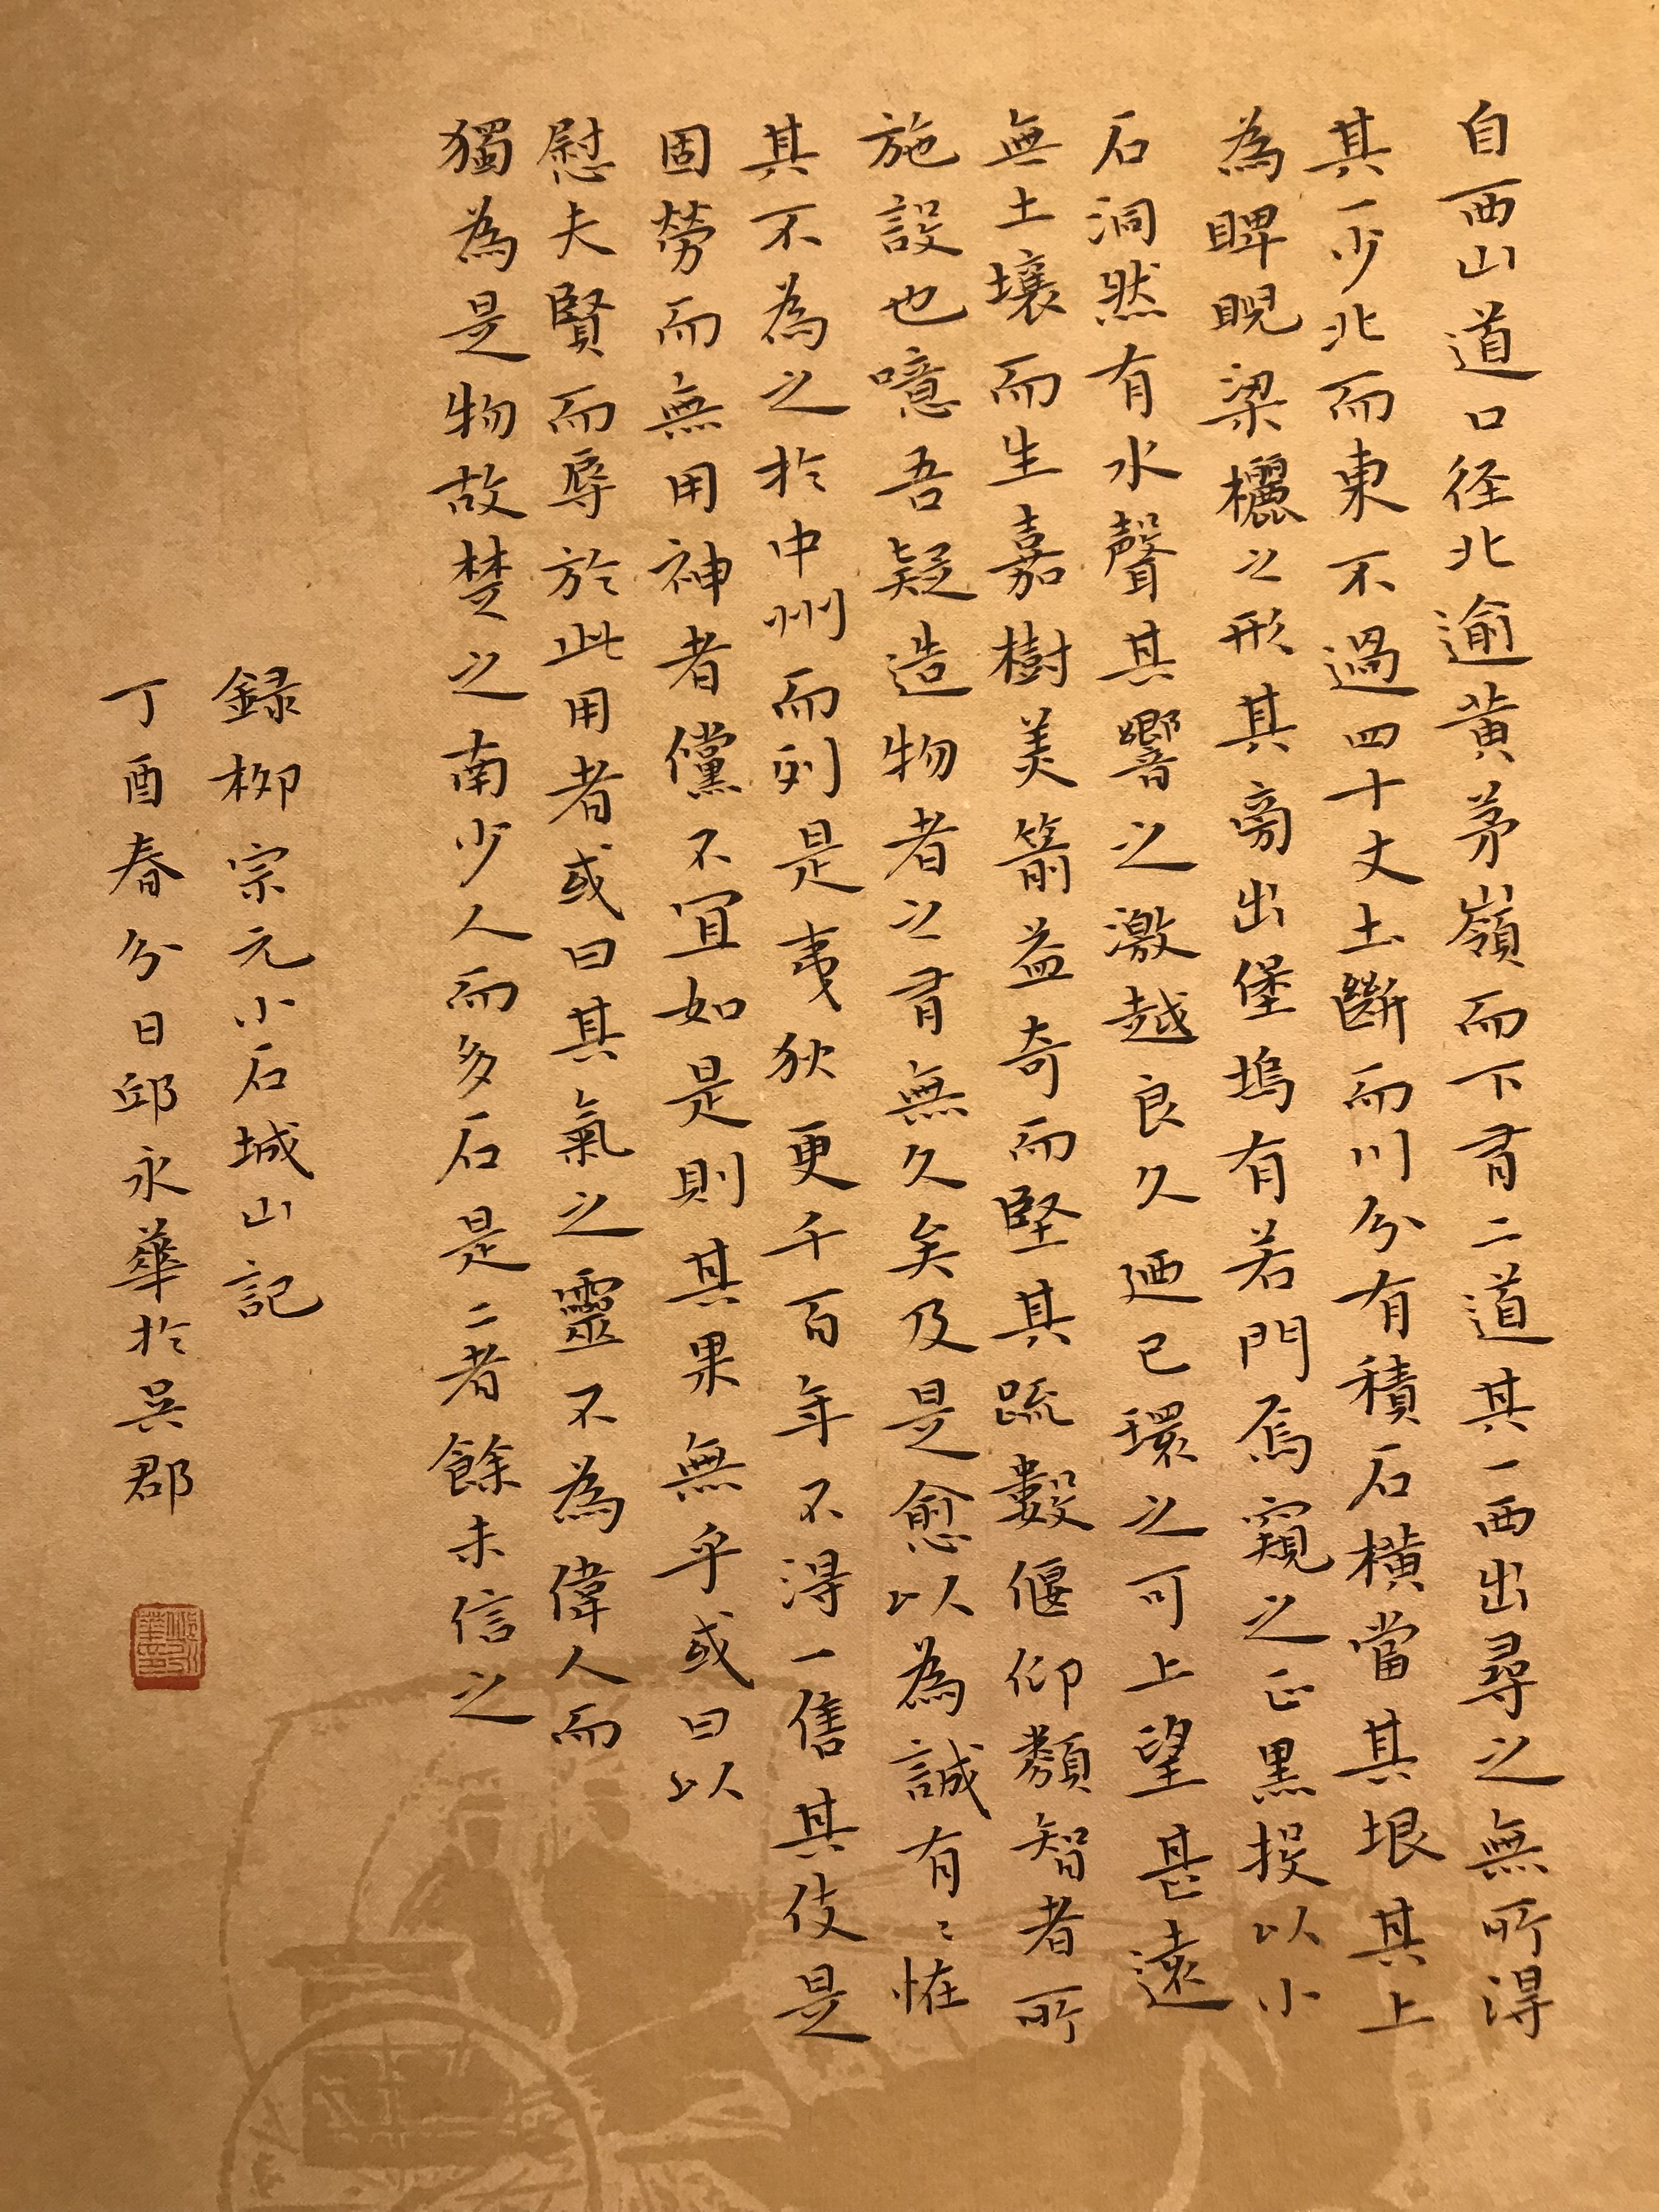 自西山道口径北逾黄茅嶺而下有二道其一西出尋之無所得
其一少北而東不過四十丈土斷而川分有積石横當其垠其上
為睥睨梁欐之形其旁出堡塢有若門焉窺之正黒投以小
石洞然有水聲其響之激越良久迺已環之可上望甚遠
無土壤而生嘉樹美箭益奇而堅其疏數偃仰類智者所
施設也噫吾疑造物者之有無久矣及是愈以為誠有〻恠
其不為之於中州而列是夷狄更千百年不得一售其伎是
固勞而無用神者儻不宜如是則其果無乎或曰以
慰夫賢而辱於此用者或曰其氣之靈不為偉人而
獨為是物故楚之南少人而多石是二者餘未信之
録柳宗元小石城山記
丁酉春分日邱永華於吳郡